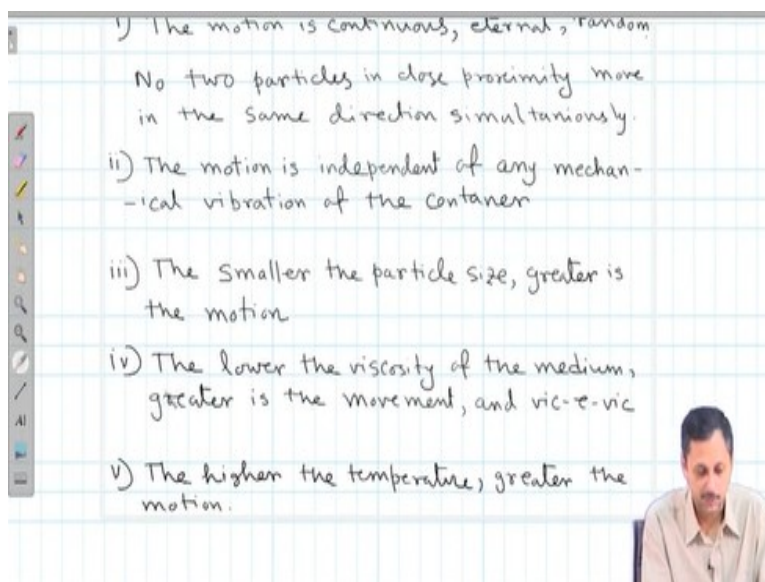 i) The motion is continuous, eternal, random
No two particles in close proximity move
in the same direction simultaniously.
ii) The motion is independent of any mechan-
-ical vibration of the contaner
iii) The smaller the particle size, greater is
the motion
iv) The lower the viscosity of the medium,
greater is the movement, and vic-e-vic
v) The higher the temperature, greater the
motion.
AI